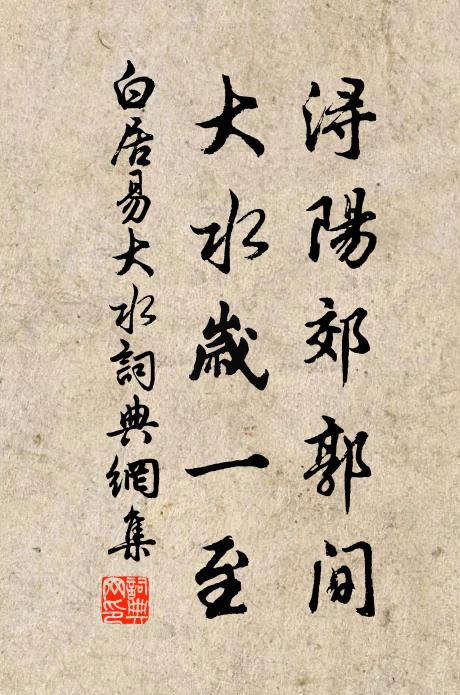 潯陽郊郭間
大水歲一至
白居易大水詞典網集
詞典網印